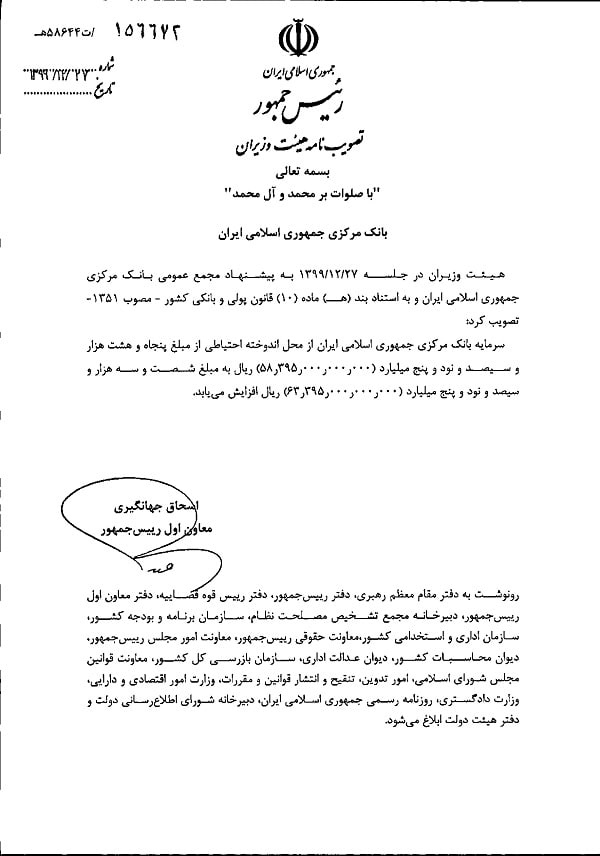 ۱۵۶۶۷۲ /ت۵۸۶۴۴هـ
شماره ۱۳۹۹/۱۲/۲۷
تاریخ
جمهوری اسلامی ایران
رئیس جمهور
تصویب نامه هیئت وزیران
بسمه تعالی
"با صلوات بر محمد و آل محمد"
بانک مرکزی جمهوری اسلامی ایران
هیئت وزیران در جلسه ۱۳۹۹/۱۲/۲۷ به پیشنهاد مجمع عمومی بانک مرکزی
جمهوری اسلامی ایران و به استناد بند (هـ) ماده (۱۰) قانون پولی و بانکی کشور - مصوب ۱۳۵۱-
تصویب کرد:
سرمایه بانک مرکزی جمهوری اسلامی ایران از محل اندوخته احتیاطی از مبلغ پنجاه و هشت هزار
و سیصد و نود و پنج میلیارد (۵۸٫۳۹۵٫۰۰۰٫۰۰۰٫۰۰۰) ریال به مبلغ شصت و سه هزار و
سیصد و نود و پنج میلیارد (۶۳٫۳۹۵٫۰۰۰٫۰۰۰٫۰۰۰) ریال افزایش می‌یابد.
اسحاق جهانگیری
معاون اول رییس‌جمهور
رونوشت به دفتر مقام معظم رهبری، دفتر رییس‌جمهور، دفتر رییس قوه قضاییه، دفتر معاون اول
رییس‌جمهور، دبیرخانه مجمع تشخیص مصلحت نظام، سازمان برنامه و بودجه کشور،
سازمان اداری و استخدامی کشور،معاونت حقوقی رییس‌جمهور، معاونت امور مجلس رییس‌جمهور،
دیوان محاسبات کشور، دیوان عدالت اداری، سازمان بازرسی کل کشور، معاونت قوانین
مجلس شورای اسلامی، امور تدوین، تنقیح و انتشار قوانین و مقررات، وزارت امور اقتصادی و دارایی،
وزارت دادگستری، روزنامه رسمی جمهوری اسلامی ایران، دبیرخانه شورای اطلاع‌رسانی دولت و
دفتر هیئت دولت ابلاغ می‌شود.